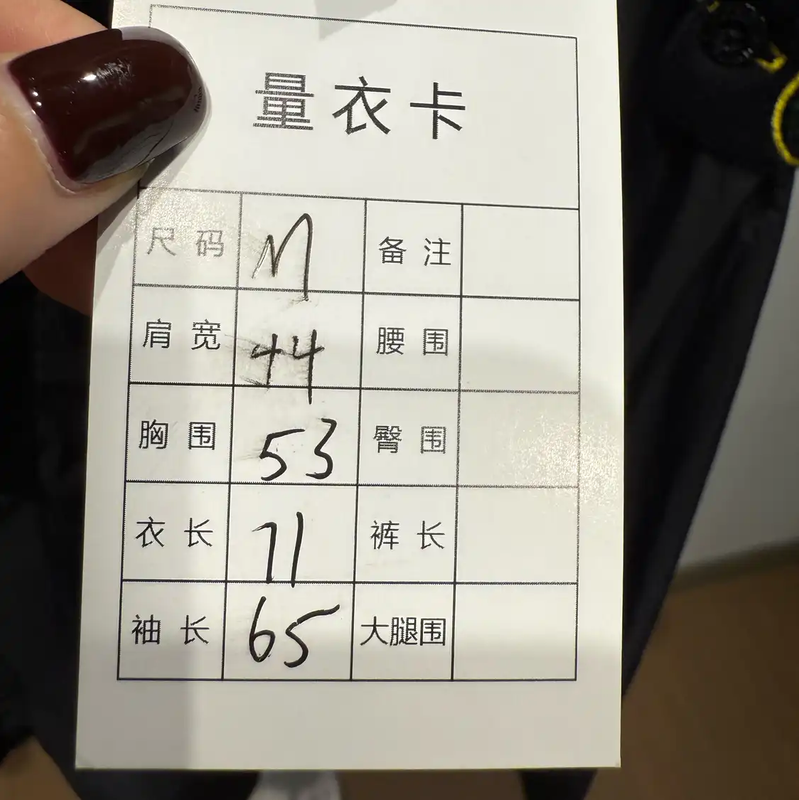 量衣卡
尺码 M 备注
肩宽 44 腰围
胸围 53 臀围
衣长 71 裤长
袖长 65 大腿围